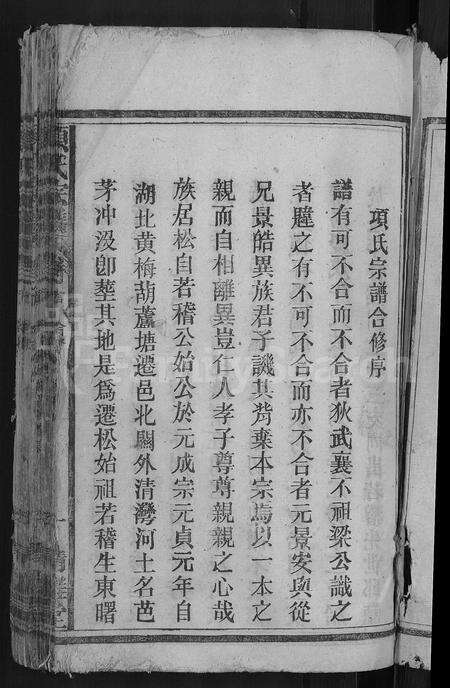 項氏宗譜合修序
譜有可不合而不合者狄武襄不祖梁公識之
者韙之有不可不合而亦不合者元景安與從
兄景皓異族君子譏其背棄本宗焉以一本之
親而自相離異豈仁人孝子尊尊親親之心哉
族居松自若稽公始公於元成宗元貞元年自
湖北黄梅葫蘆塘遷邑北關外清灣河土名芭
茅冲没卽塟其地是爲遷松始祖若稽生東曙
項氏宗譜